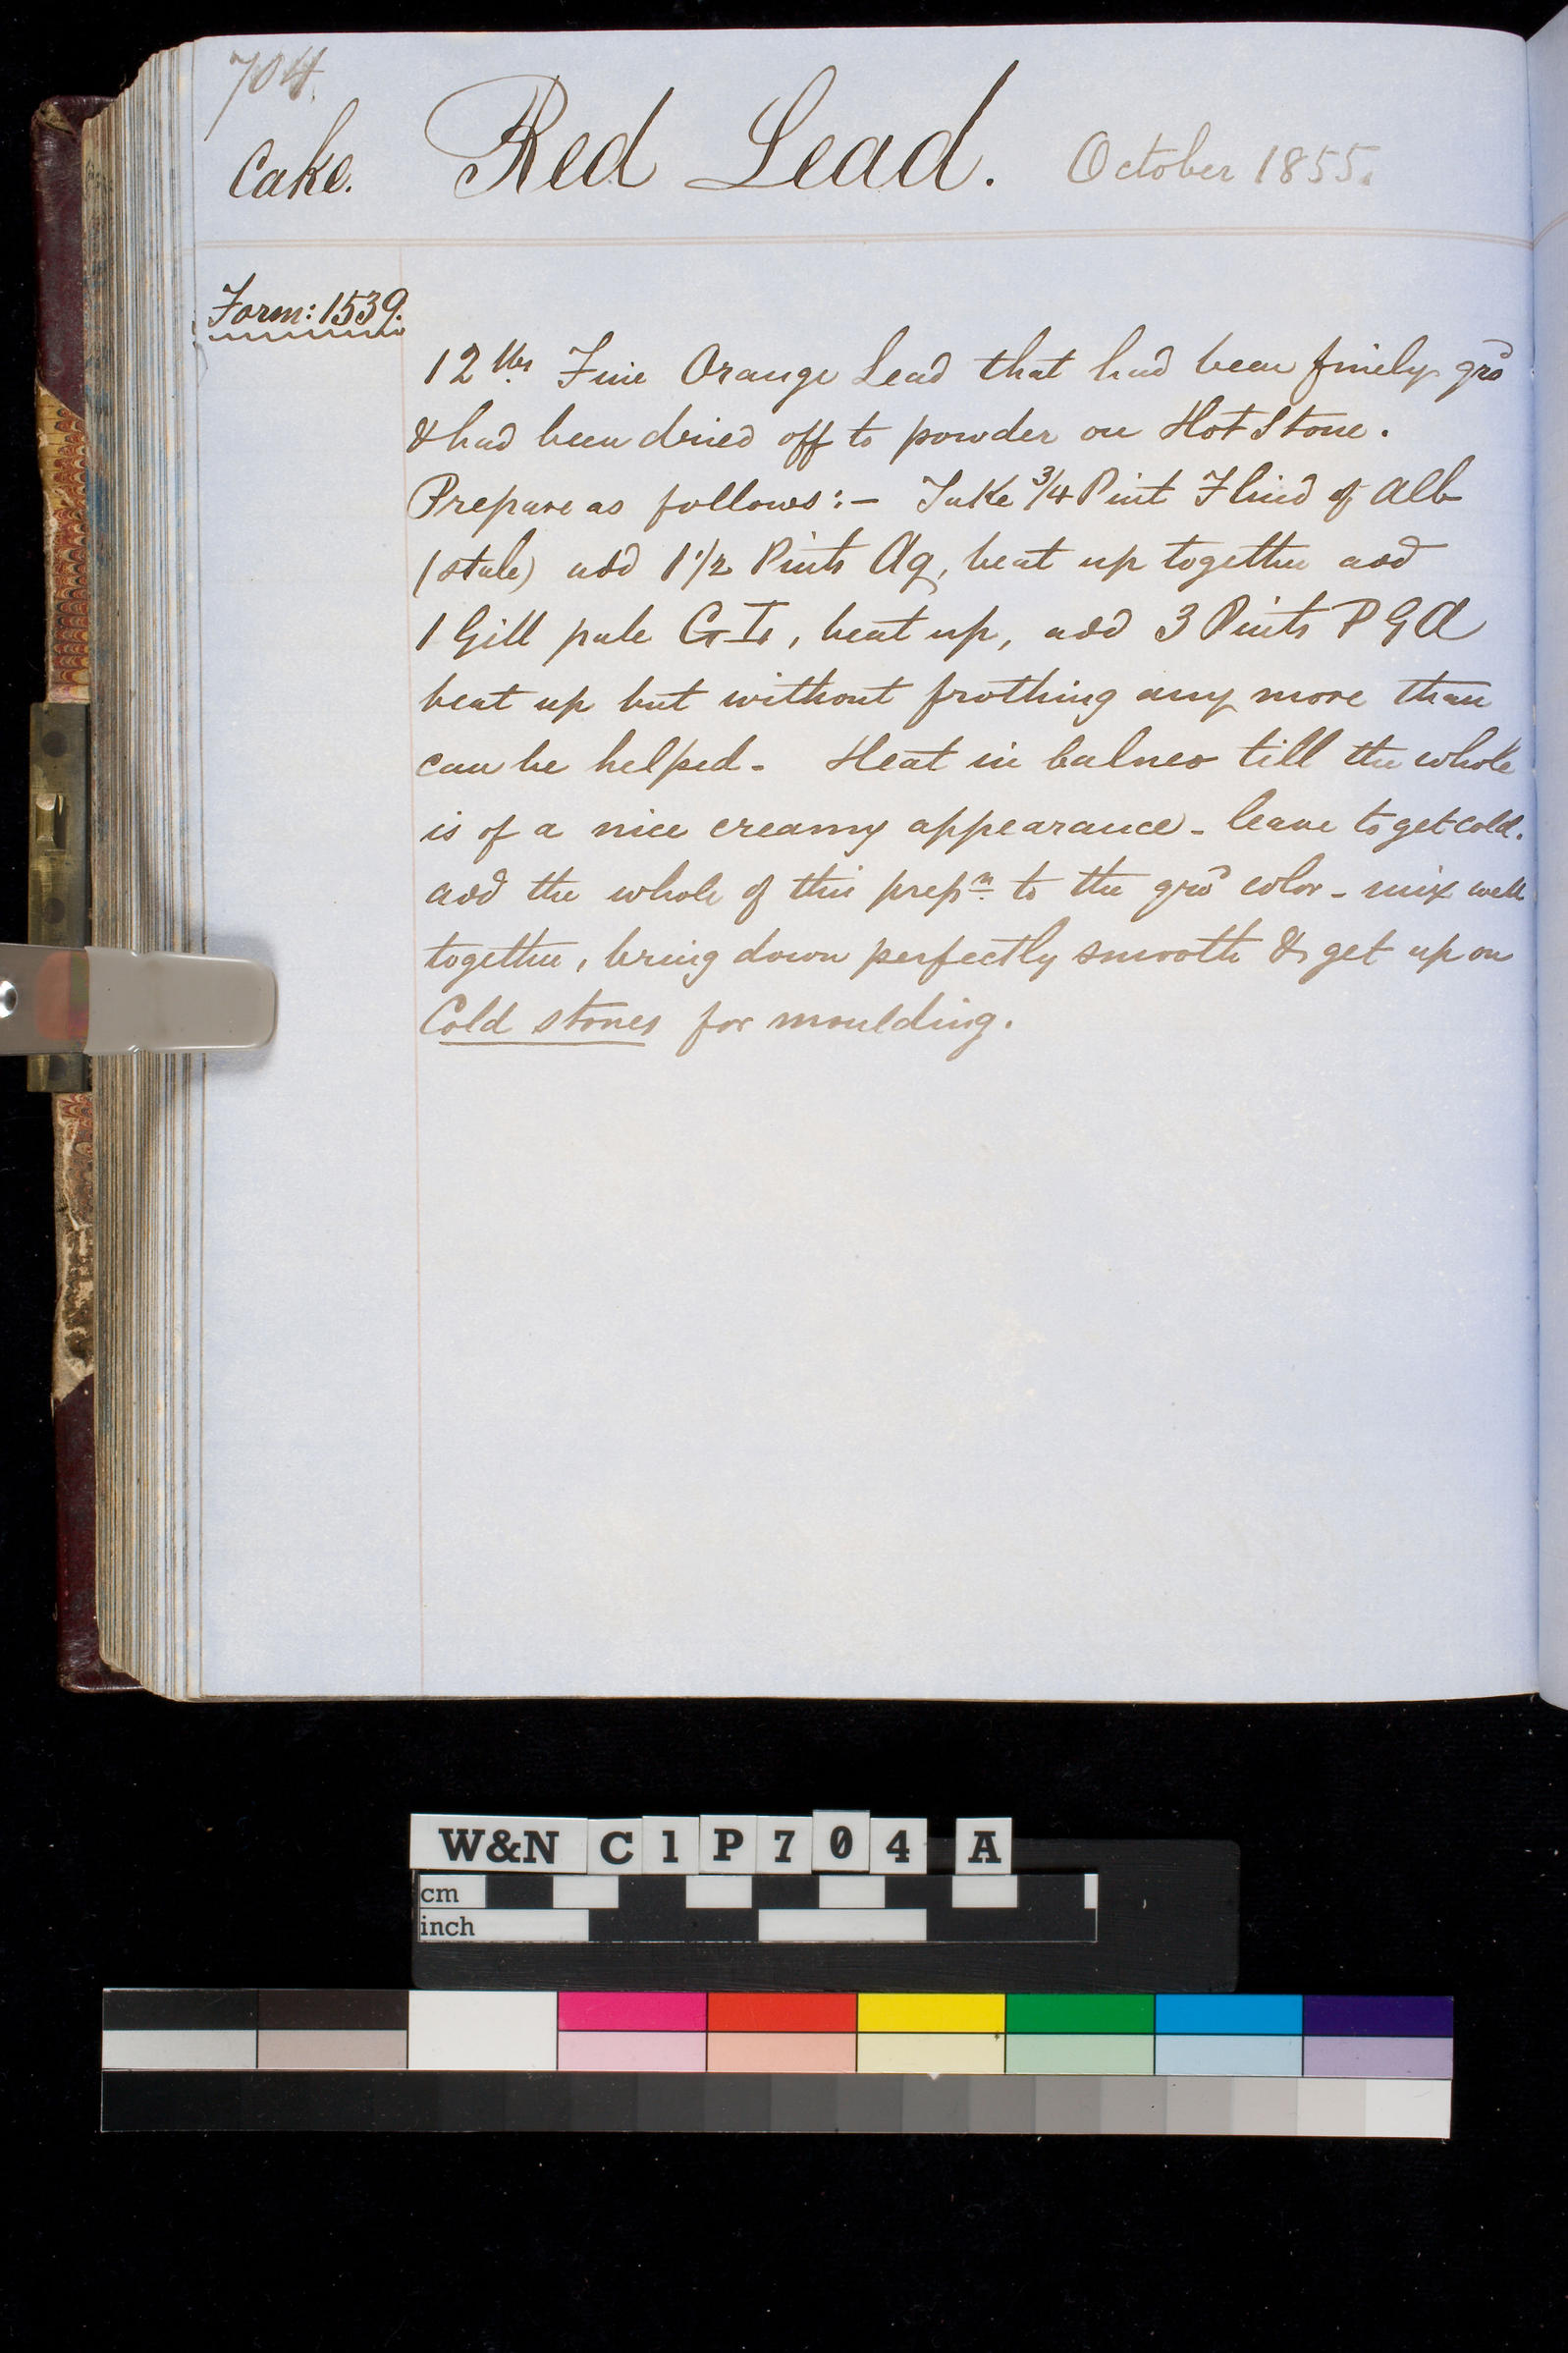 704.
Cake. Red Lead. October 1855.
Form: 1539.
12 lbs Fine Orange Lead that had been finely gro^d
& had been dried off to powder on Hot Stone.
Prepare as follows:- Take 3/4 Pint Fluid of Alb
(stale) add 1 1/2 Pints Aq, beat up together add
1 Gill pale G T, beat up, add 3 Pints P G A
beat up but without frothing any more than
can be helped - Heat in balneo till the whole
is of a nice creamy appearance - leave to get cold.
add the whole of this prep^n to the gro^d color - mix well
together, bring down perfectly smooth & get up on
Cold stones for moulding.
W&N C1P704 A
cm
inch